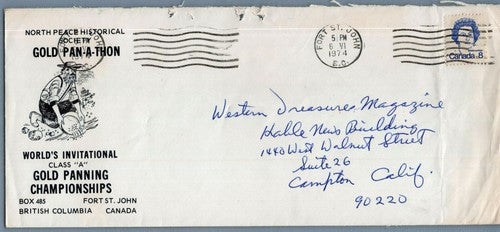 NORTH PEACE HISTORICAL
SOCIETY
GOLD PAN-A-THON
WORLD'S INVITATIONAL
CLASS "A"
GOLD PANNING
CHAMPIONSHIPS
BOX 485 FORT ST. JOHN
BRITISH COLUMBIA CANADA
FORT ST. JOHN
5 PM
6 VI
1974
B.C.
Canada 8
Western Treasures Magazine
Hable News Building
1440 West Walnut Street
Suite 26
Campton Calif.
90220